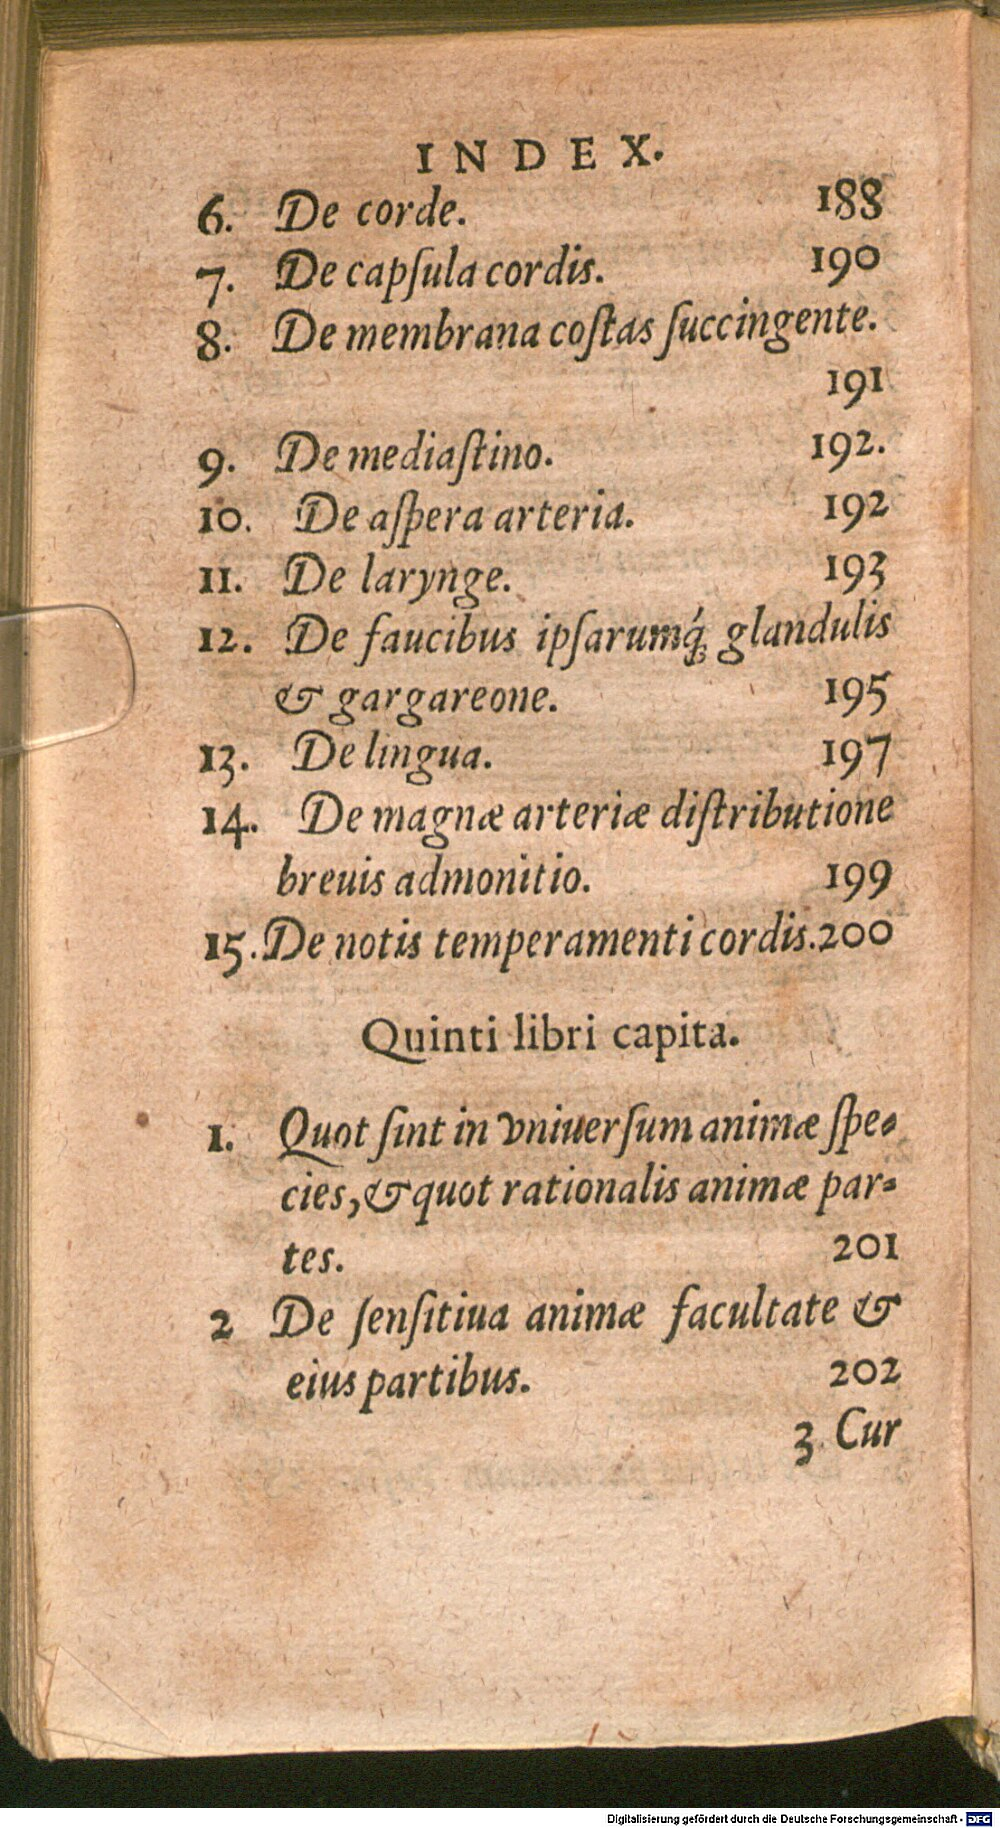 INDEX.
6. De corde. 188
7. De capſula cordis. 190
8. De membrana coſtas ſuccingente.
191
9. De mediaſtino. 192.
10. De aſpera arteria. 192
11. De larynge. 193
12. De faucibus ipſarumq́; glandulis
& gargareone. 195
13. De lingua. 197
14. De magnæ arteriæ diſtributione
breuis admonitio. 199
15. De notis temperamenti cordis. 200
Quinti libri capita.
1. Quot ſint in vniuerſum animæ ſpe-
cies, & quot rationalis animæ par-
tes. 201
2 De ſenſitiua animæ facultate &
eius partibus. 202
3 Cur
Digitalisierung gefördert durch die Deutsche Forschungsgemeinschaft - DFG